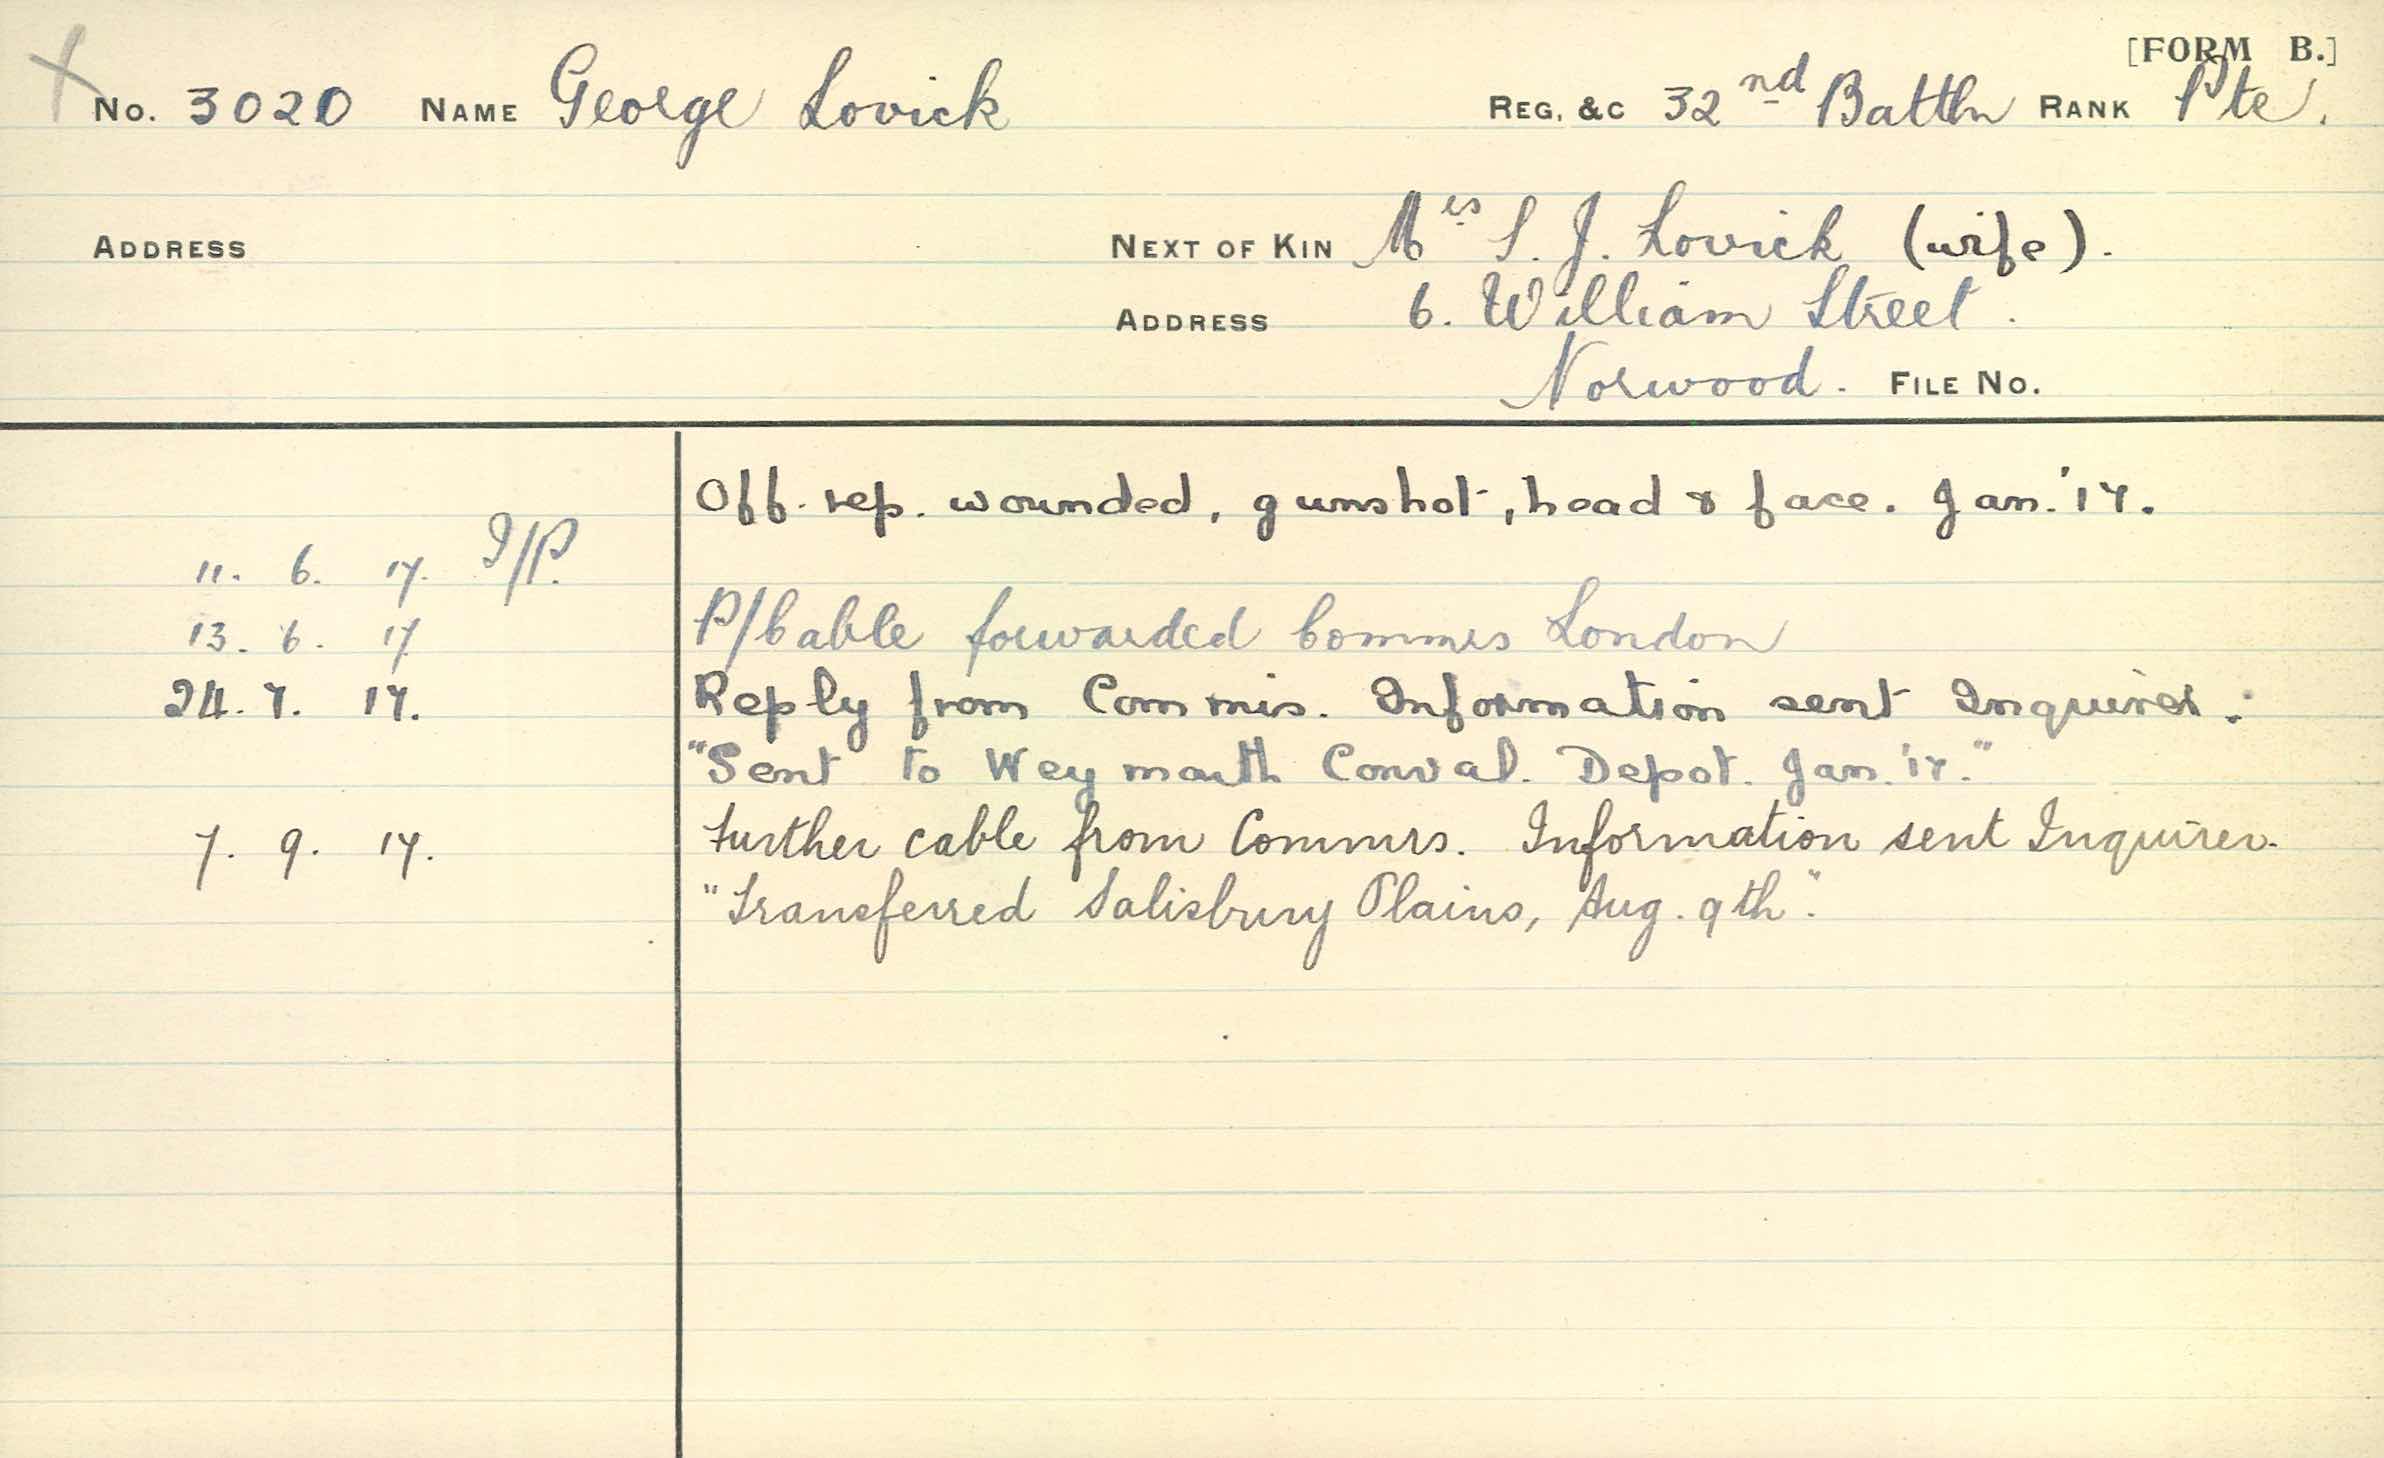 [FORM B.]
No. 3020 NAME George Lovick REG. &C 32nd Battln RANK Pte.
ADDRESS NEXT OF KIN Mrs S. J. Lovick (wife).
ADDRESS 6. William Street.
Norwood. FILE No.
Off. rep. wounded, gunshot, head & face. Jan. '17.
11. 6. 17. I/P.
13. 6. 17 P/Cable forwarded Commrs London
24. 7. 17. Reply from Commis. Information sent Inquirer:
"Sent to Weymouth Conval. Depot. Jan. '17."
7. 9. 17. Further cable from Commrs. Information sent Inquirer.
"Transferred Salisbury Plains, Aug. 9th".